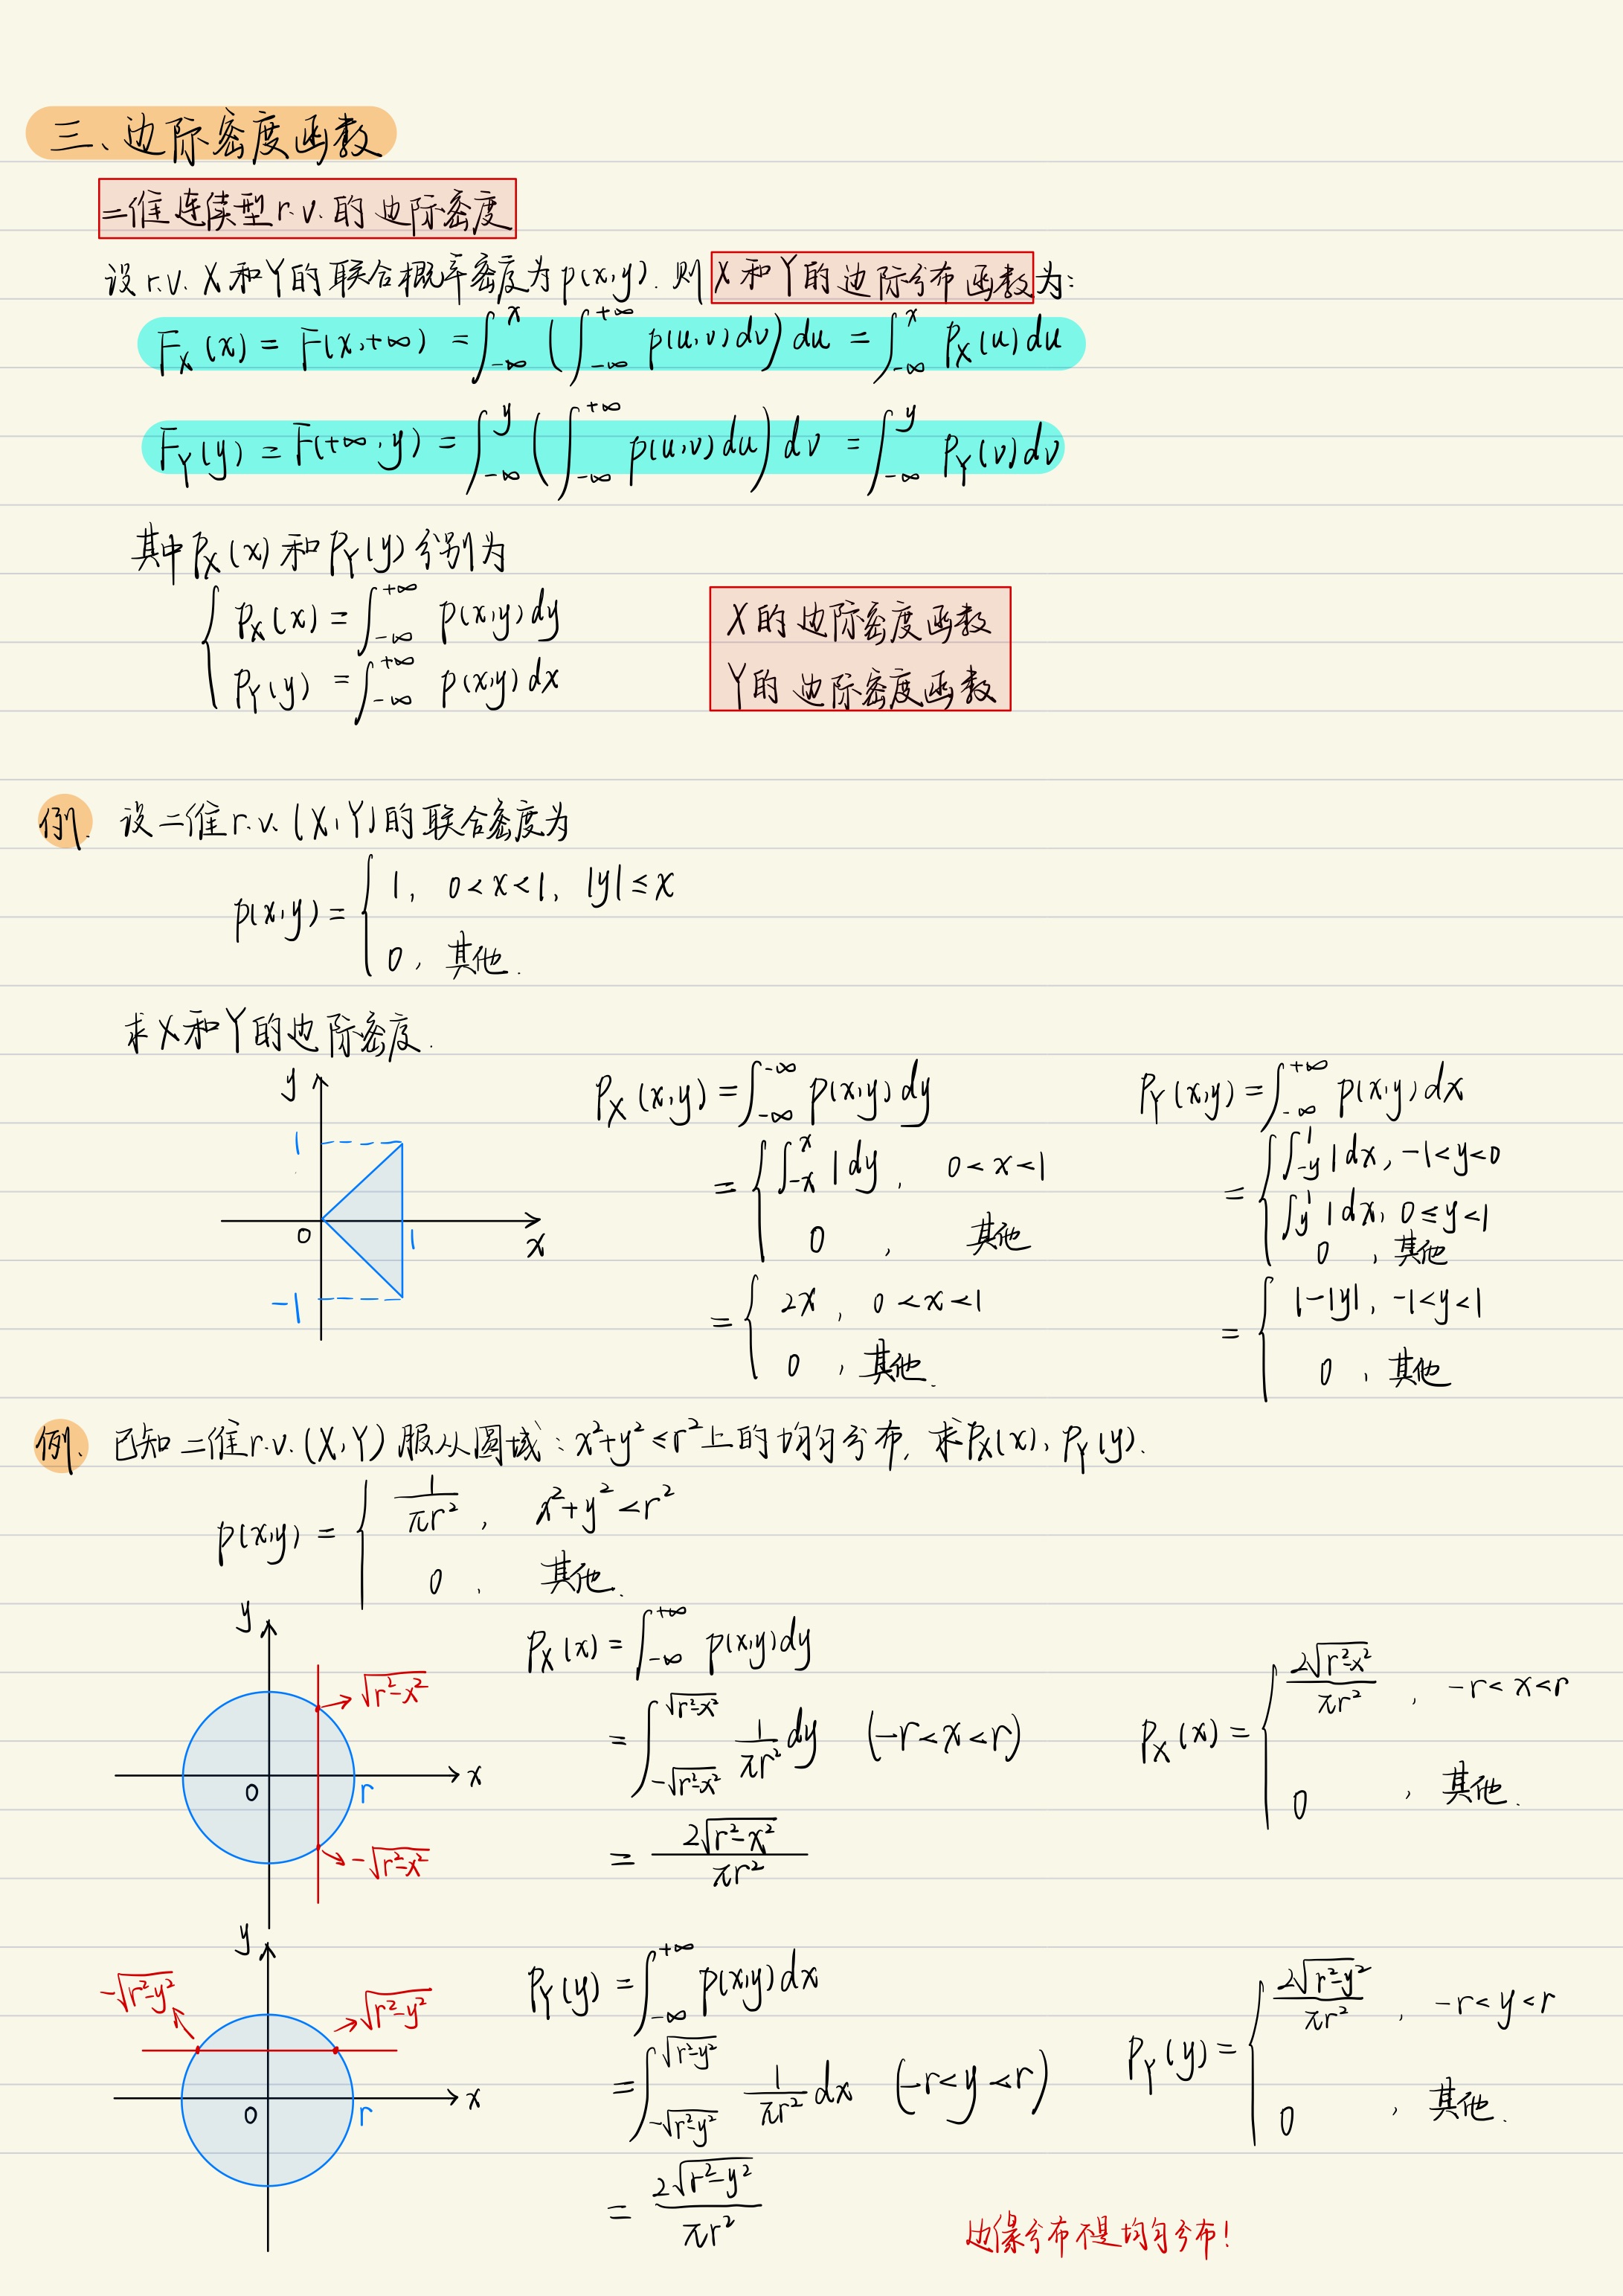 三、边际密度函数
二维连续型r.v.的边际密度
设r.v. X和Y的联合概率密度为p(x,y). 则X和Y的边际分布函数为:
F_X(x) = F(x,+∞) = ∫_{-∞}^{x} (∫_{-∞}^{+∞} p(u,v)dv) du = ∫_{-∞}^{x} p_X(u)du
F_Y(y) = F(+∞,y) = ∫_{-∞}^{y} (∫_{-∞}^{+∞} p(u,v)du) dv = ∫_{-∞}^{y} p_Y(v)dv
其中p_X(x)和p_Y(y)分别为
p_X(x) = ∫_{-∞}^{+∞} p(x,y)dy X的边际密度函数
p_Y(y) = ∫_{-∞}^{+∞} p(x,y)dx Y的边际密度函数
例. 设二维r.v.(X,Y)的联合密度为
p(x,y) = { 1, 0<x<1, |y|≤x
0, 其他.
求X和Y的边际密度.
y
1
0
1
x
-1
P_X(x,y) = ∫_{-∞}^{-∞} p(x,y)dy
= { ∫_{-x}^{x} 1dy, 0<x<1
0, 其他
= { 2x, 0<x<1
0, 其他.
P_Y(x,y) = ∫_{-∞}^{+∞} p(x,y)dx
= { ∫_{-y}^{1} 1dx, -1<y<0
∫_{y}^{1} 1dx, 0≤y<1
0, 其他
= { 1-|y|, -1<y<1
0, 其他
例. 已知二维r.v.(X,Y)服从圆域: x²+y²≤r²上的均匀分布, 求P_X(x), P_Y(y).
p(x,y) = { 1/πr², x²+y²<r²
0, 其他.
y
√(r²-x²)
x
0
r
-√(r²-x²)
P_X(x) = ∫_{-∞}^{+∞} p(x,y)dy
= ∫_{-√(r²-x²)}^{√(r²-x²)} 1/πr² dy (-r<x<r)
= 2√(r²-x²)/πr²
P_X(x) = { 2√(r²-x²)/πr², -r<x<r
0, 其他.
y
-√(r²-y²)
√(r²-y²)
x
0
r
P_Y(y) = ∫_{-∞}^{+∞} p(x,y)dx
= ∫_{-√(r²-y²)}^{√(r²-y²)} 1/πr² dx (-r<y<r)
= 2√(r²-y²)/πr²
P_Y(y) = { 2√(r²-y²)/πr², -r<y<r
0, 其他.
边缘分布不是均匀分布!